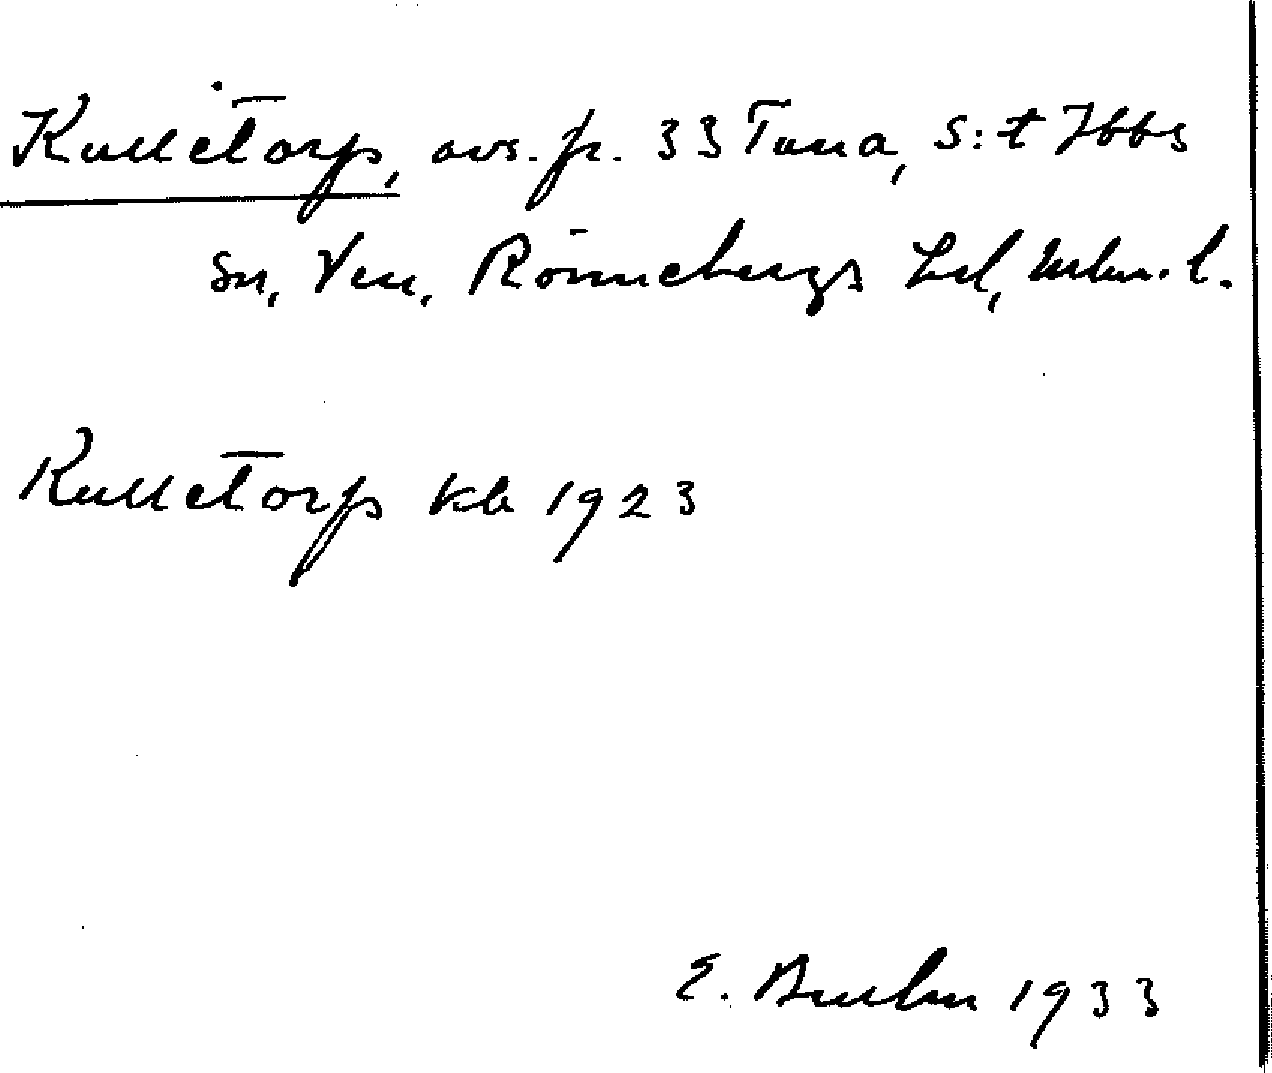 Kulletorp, avs. fr. 33 Tuna, S:t Ibbs
sn, Ven, Rönnebergs hd, Mlm. l.
Kulletorp kb 1923
E. 1933